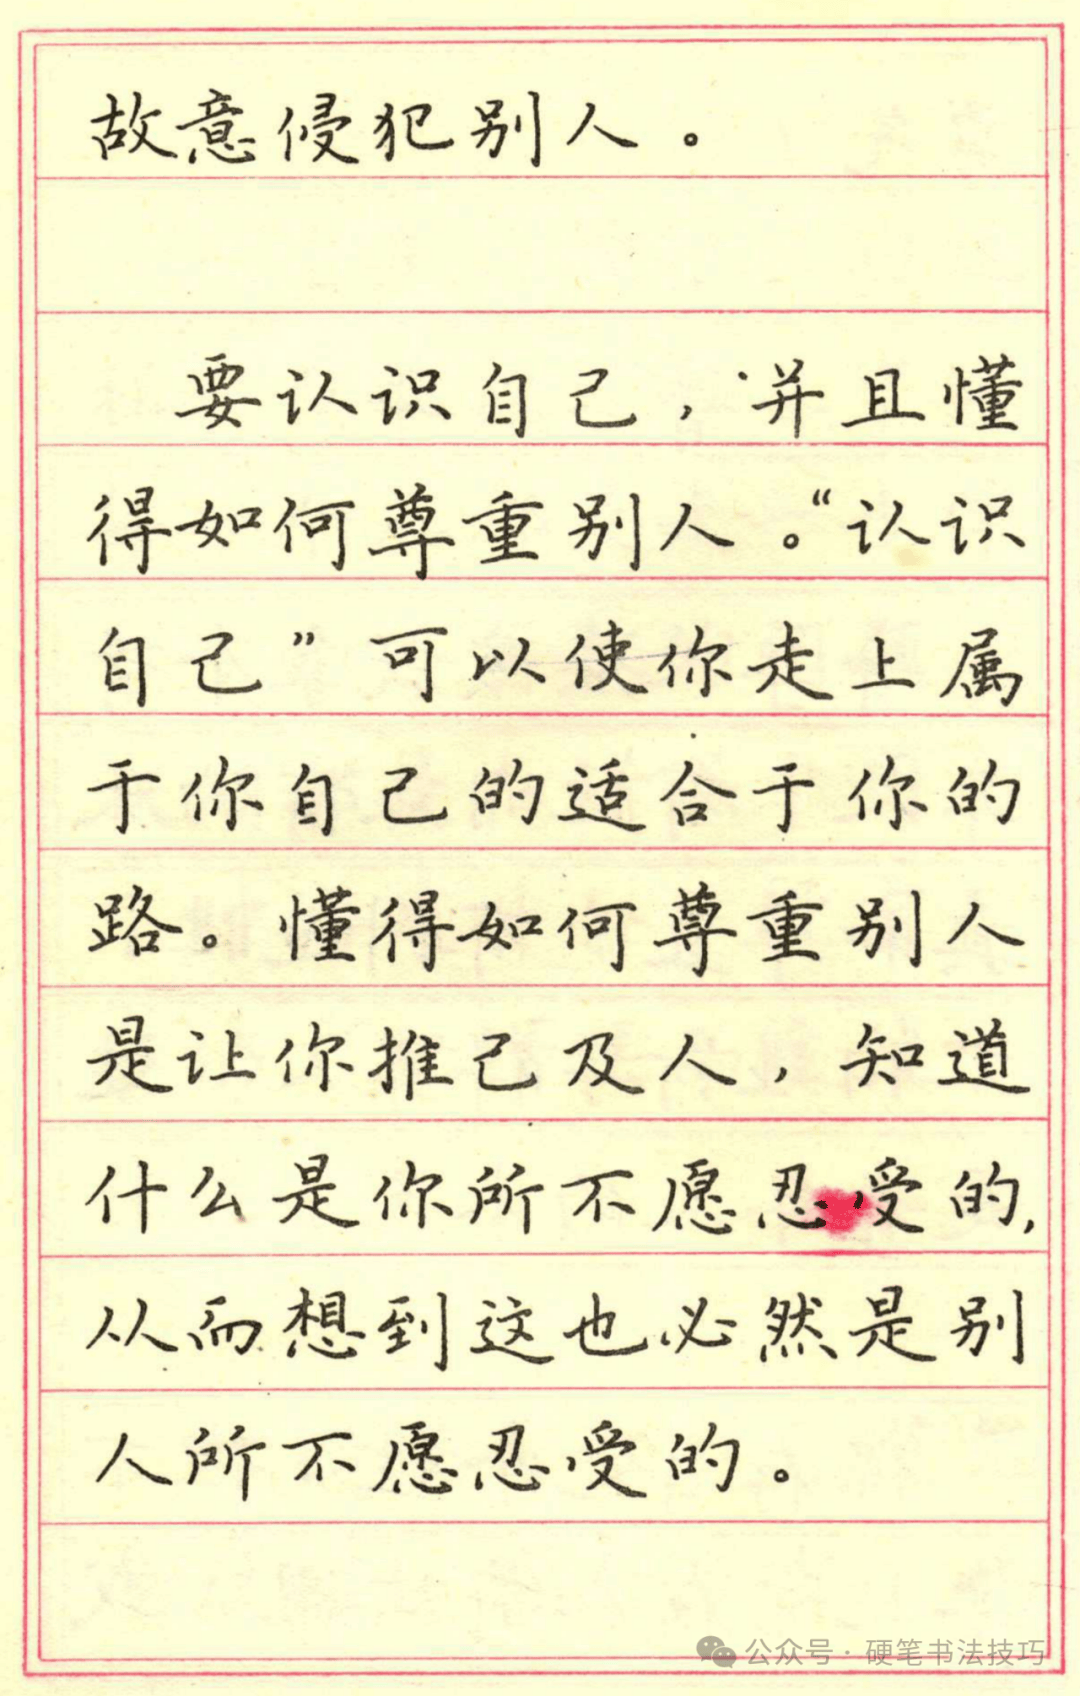 故意侵犯别人。
要认识自己，并且懂
得如何尊重别人。“认识
自己”可以使你走上属
于你自己的适合于你的
路。懂得如何尊重别人
是让你推己及人，知道
什么是你所不愿忍受的，
从而想到这也必然是别
人所不愿忍受的。
公众号·硬笔书法技巧